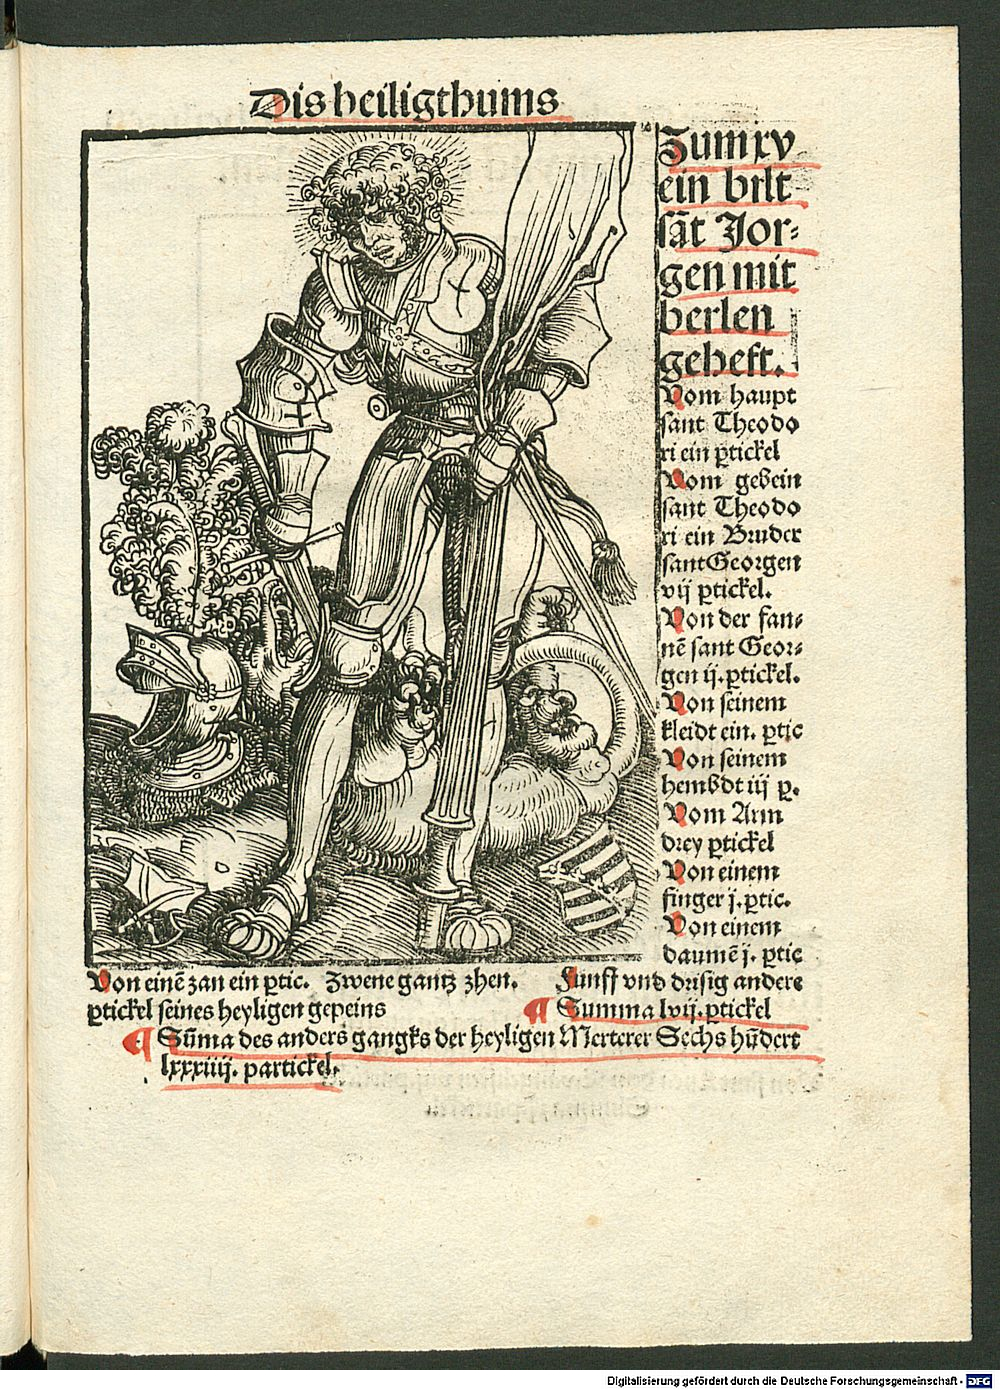 Dis heiligthums
Zum xv
ein bilt
sāt Jor⸗
gen mit
berlen
geheft.
Vom haupt
sant Theodo
ri ein ꝑtickel
Vom gebein
sant Theodo
ri ein Bruder
sant Georgen
vij ꝑtickel.
Von der fan⸗
nē sant Geor⸗
gen ij. ꝑtickel.
Von seinem
kleidt ein. ꝑtic
Von seinem
hembdt iij ꝑ.
Vom Arm
drey ꝑtickel
Von einem
finger j. ꝑtic.
Von einem
daumē j. ꝑtic
Von einē zan ein ꝑtic. Zwene gantz zhen. Funff vnd drisig andere
ꝑtickel seines heyligen gepeins ¶ Summa lvij. ꝑtickel
¶ Sūma des anders gangks der heyligen Merterer Sechs hūdert
lxxxiiij. partickel.
Digitalisierung gefördert durch die Deutsche Forschungsgemeinschaft - DFG